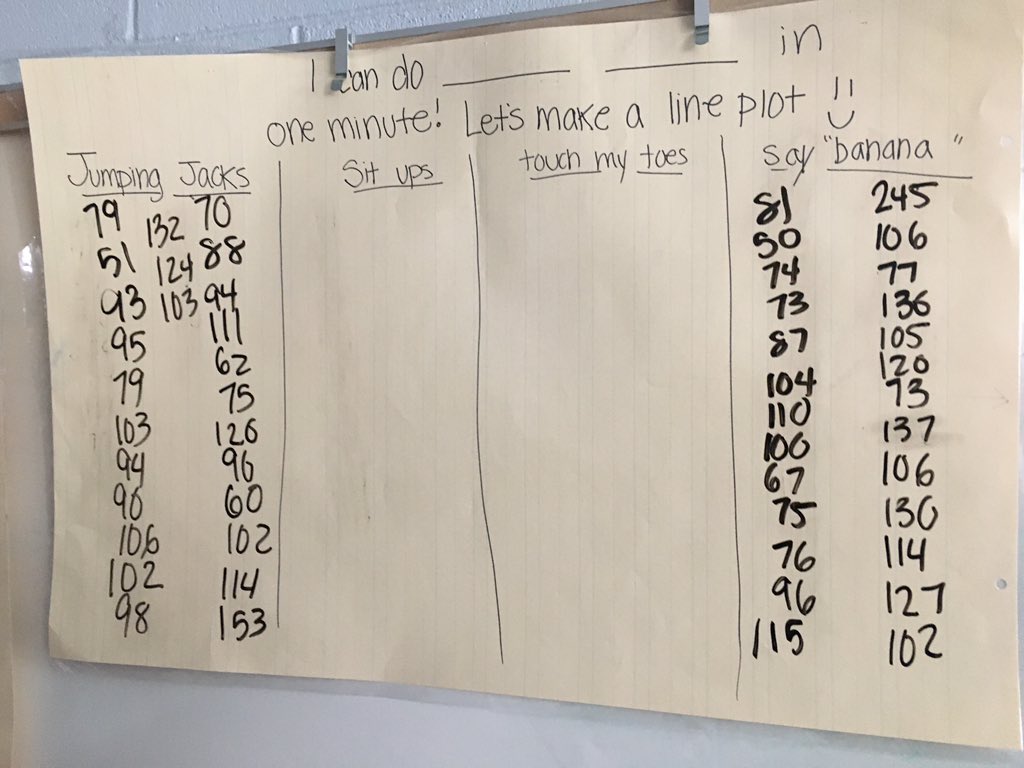 I can do ______ ______ in
one minute! Let's make a line plot
Jumping Jacks
79 132 70
51 124 88
93 103 94
95 111
79 62
103 75
94 126
90 96
106 60
102 102
98 114
153
Sit ups
touch my toes
say "banana"
81 245
50 106
74 77
73 136
87 105
104 120
110 73
100 137
67 106
75 130
76 114
96 127
115 102